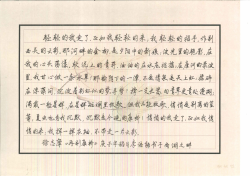 轻轻的我走了,正如我轻轻的来,我轻轻的招手,作别
西天的云彩。那河畔的金柳,是夕阳中的新娘,波光里的艳影,在
我的心头荡漾。软泥上的青荇,油油的在水底招摇;在康河的柔波里,
我甘心做一条水草!那榆荫下的一潭,不是清泉是天上虹,揉碎
在浮藻间,沉淀着彩虹似的梦。寻梦?撑一支长篙,向青草更青处漫溯,
满载一船星辉,在星辉斑斓里放歌。但我不能放歌,悄悄是别离的笙箫,
夏虫也为我沉默,沉默是今晚的康桥!悄悄的我走了,正如我悄
悄的来,我挥一挥衣袖,不带走一片云彩。
徐志摩《再别康桥》